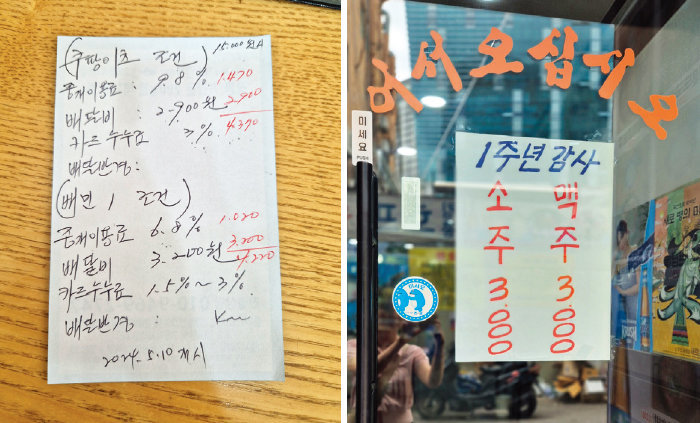 (쿠팡이츠 조건) 15.000원시
중개이용료 : 9.8% 1.470
배달비 : 2.900원 2.900
카드수수료 3% 4.370
배달반경 :
(배민 1 조건)
중개이용료 6.8% 1.020
배달비 3.200원 3.200
카드수수료 1.5%~3% 4.220
배달반경 : Km
2024.5.10 개시
어서오십시오
미세요
PUSH
1주년 감사
소주 3.000
맥주 3.000